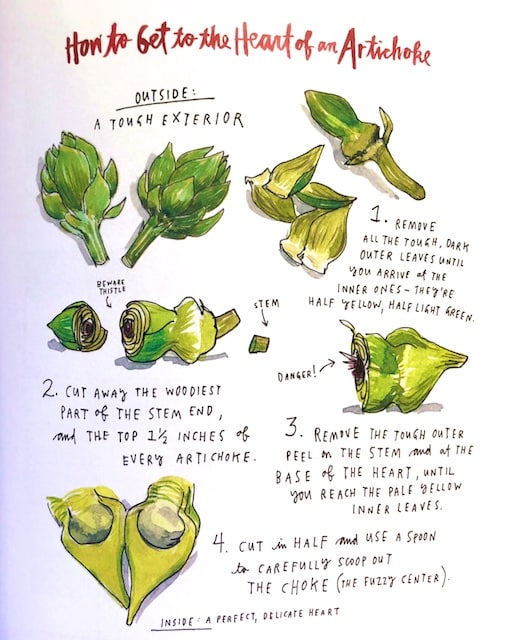 How to Get to the Heart of an Artichoke
OUTSIDE:
A TOUGH EXTERIOR
1. REMOVE
ALL THE TOUGH, DARK
OUTER LEAVES UNTIL
YOU ARRIVE at THE
INNER ONES – THEY'RE
HALF YELLOW, HALF LIGHT GREEN.
BEWARE
THISTLE
STEM
DANGER!
2. CUT AWAY THE WOODIEST
PART of THE STEM END,
and THE TOP 1½ INCHES of
EVERY ARTICHOKE.
3. REMOVE THE TOUGH OUTER
PEEL on THE STEM and at THE
BASE of THE HEART, UNTIL
YOU REACH THE PALE YELLOW
INNER LEAVES.
4. CUT in HALF and USE A SPOON
to CAREFULLY SCOOP OUT
THE CHOKE (THE FUZZY CENTER).
INSIDE: A PERFECT, DELICATE HEART